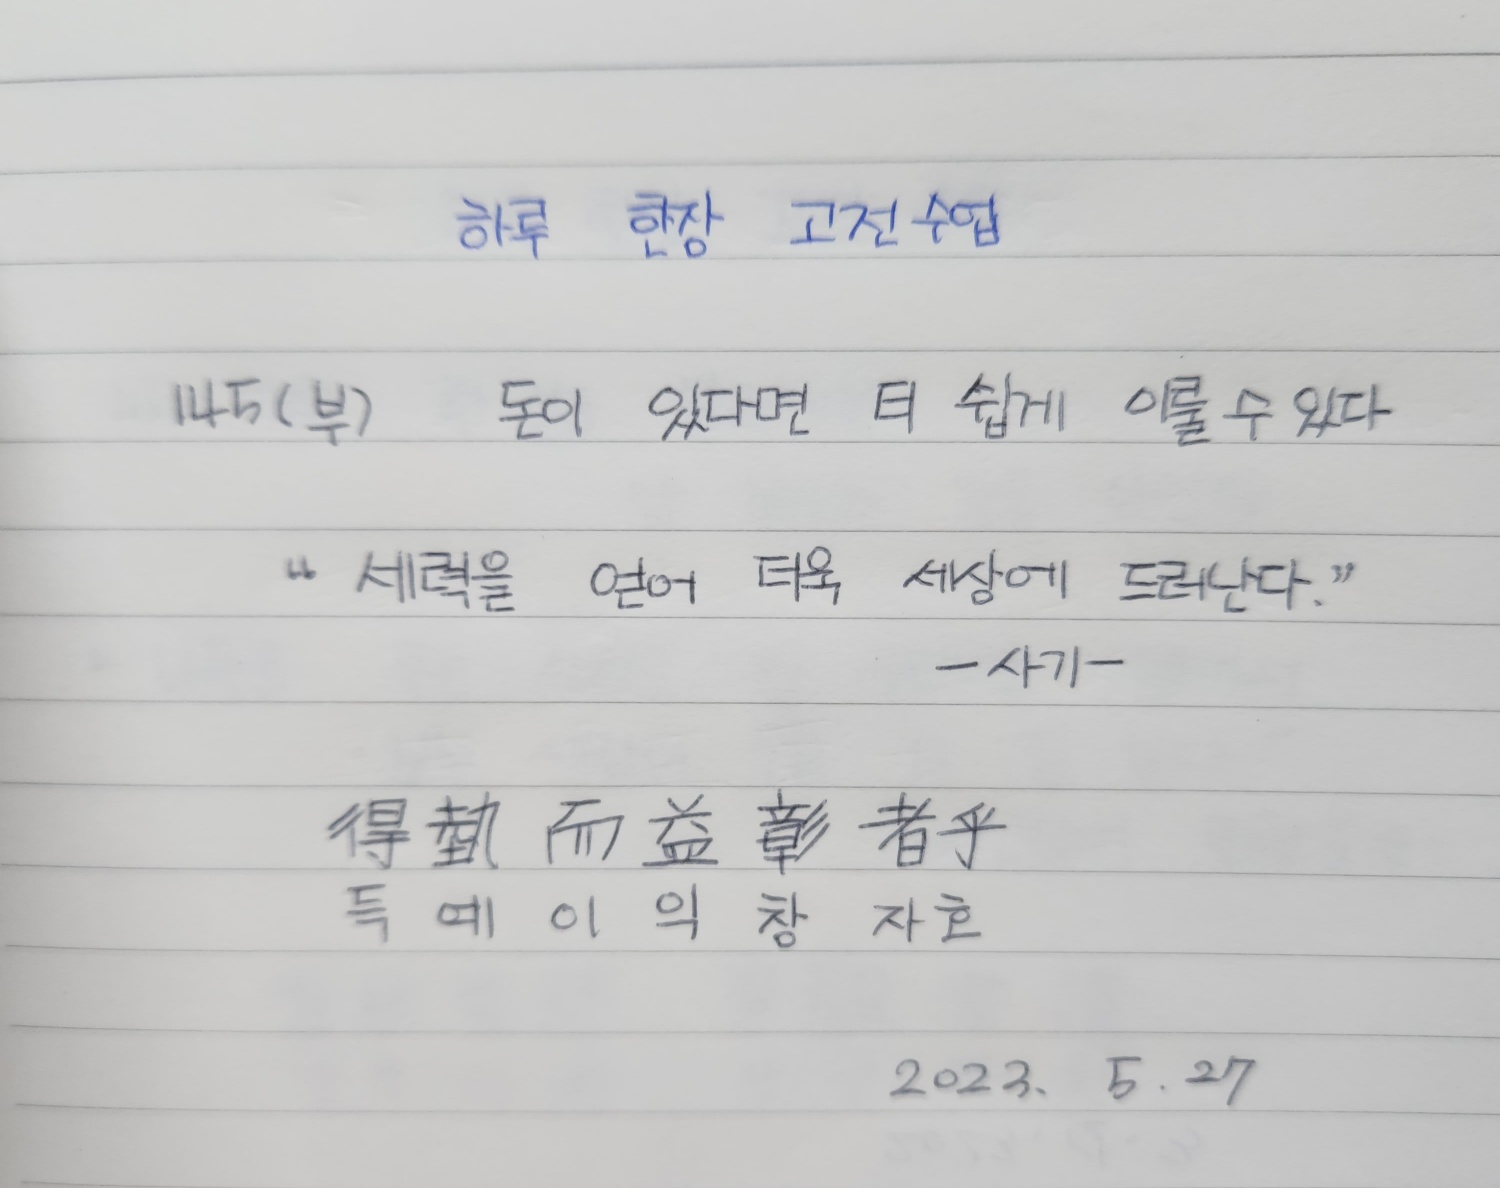 하루 한장 고전수업
145(부) 돈이 있다면 더 쉽게 이룰 수 있다
“ 세력을 얻어 더욱 세상에 드러난다.”
－사기－
得埶而益彰者乎
득예이익창자호
2023. 5. 27